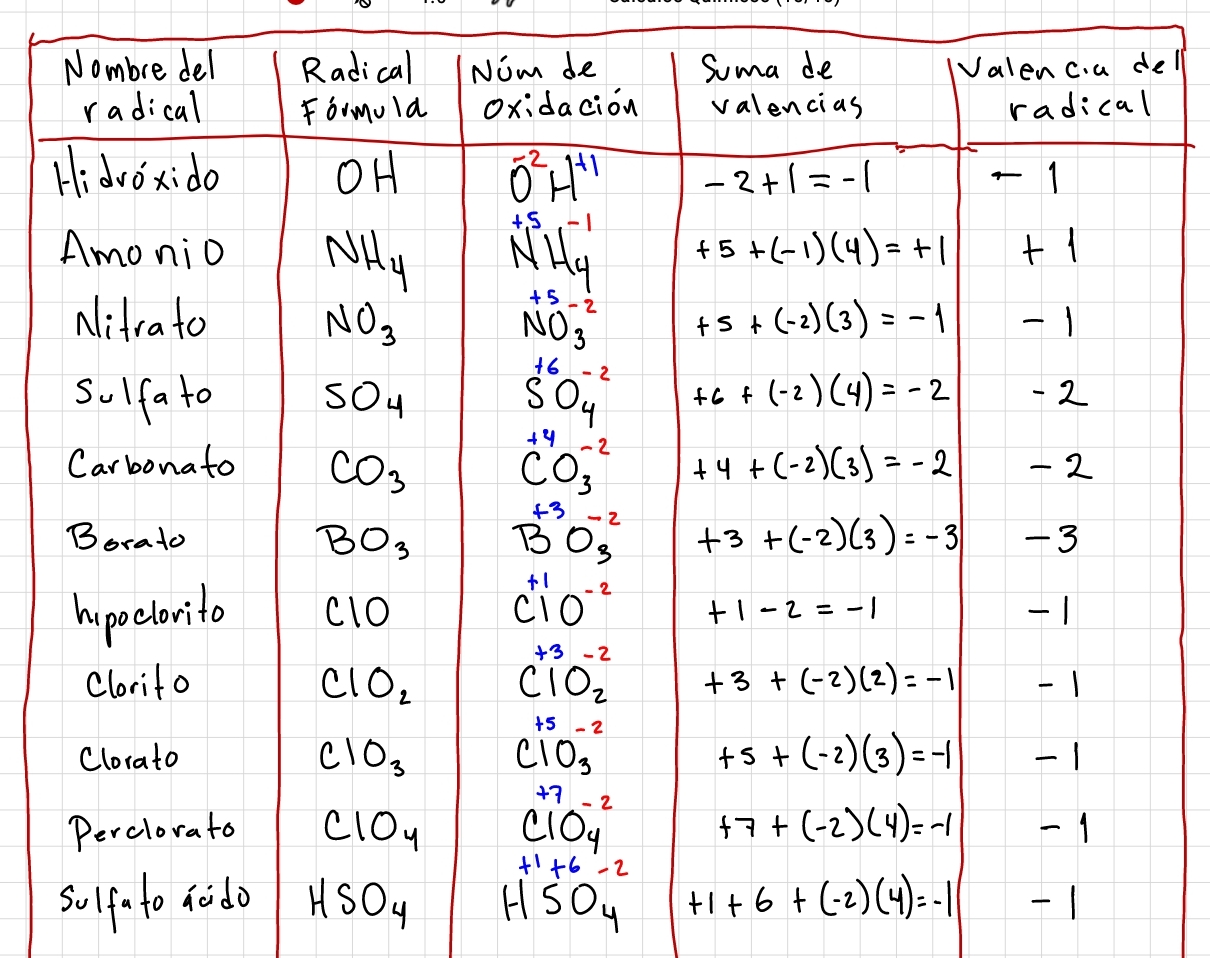 Nombre del radical | Radical Fórmula | Núm de oxidación | Suma de valencias | Valencia del radical
Hidróxido | OH | O⁻² H⁺¹ | -2+1=-1 | -1
Amonio | NH₄ | N⁺⁵ H₄⁻¹ | +5+(-1)(4)=+1 | +1
Nitrato | NO₃ | N⁺⁵ O₃⁻² | +5+(-2)(3)=-1 | -1
Sulfato | SO₄ | S⁺⁶ O₄⁻² | +6+(-2)(4)=-2 | -2
Carbonato | CO₃ | C⁺⁴ O₃⁻² | +4+(-2)(3)=-2 | -2
Borato | BO₃ | B⁺³ O₃⁻² | +3+(-2)(3)=-3 | -3
hipoclorito | ClO | Cl⁺¹ O⁻² | +1-2=-1 | -1
Clorito | ClO₂ | Cl⁺³ O₂⁻² | +3+(-2)(2)=-1 | -1
Clorato | ClO₃ | Cl⁺⁵ O₃⁻² | +5+(-2)(3)=-1 | -1
Perclorato | ClO₄ | Cl⁺⁷ O₄⁻² | +7+(-2)(4)=-1 | -1
Sulfato ácido | HSO₄ | H⁺¹ S⁺⁶ O₄⁻² | +1+6+(-2)(4)=-1 | -1